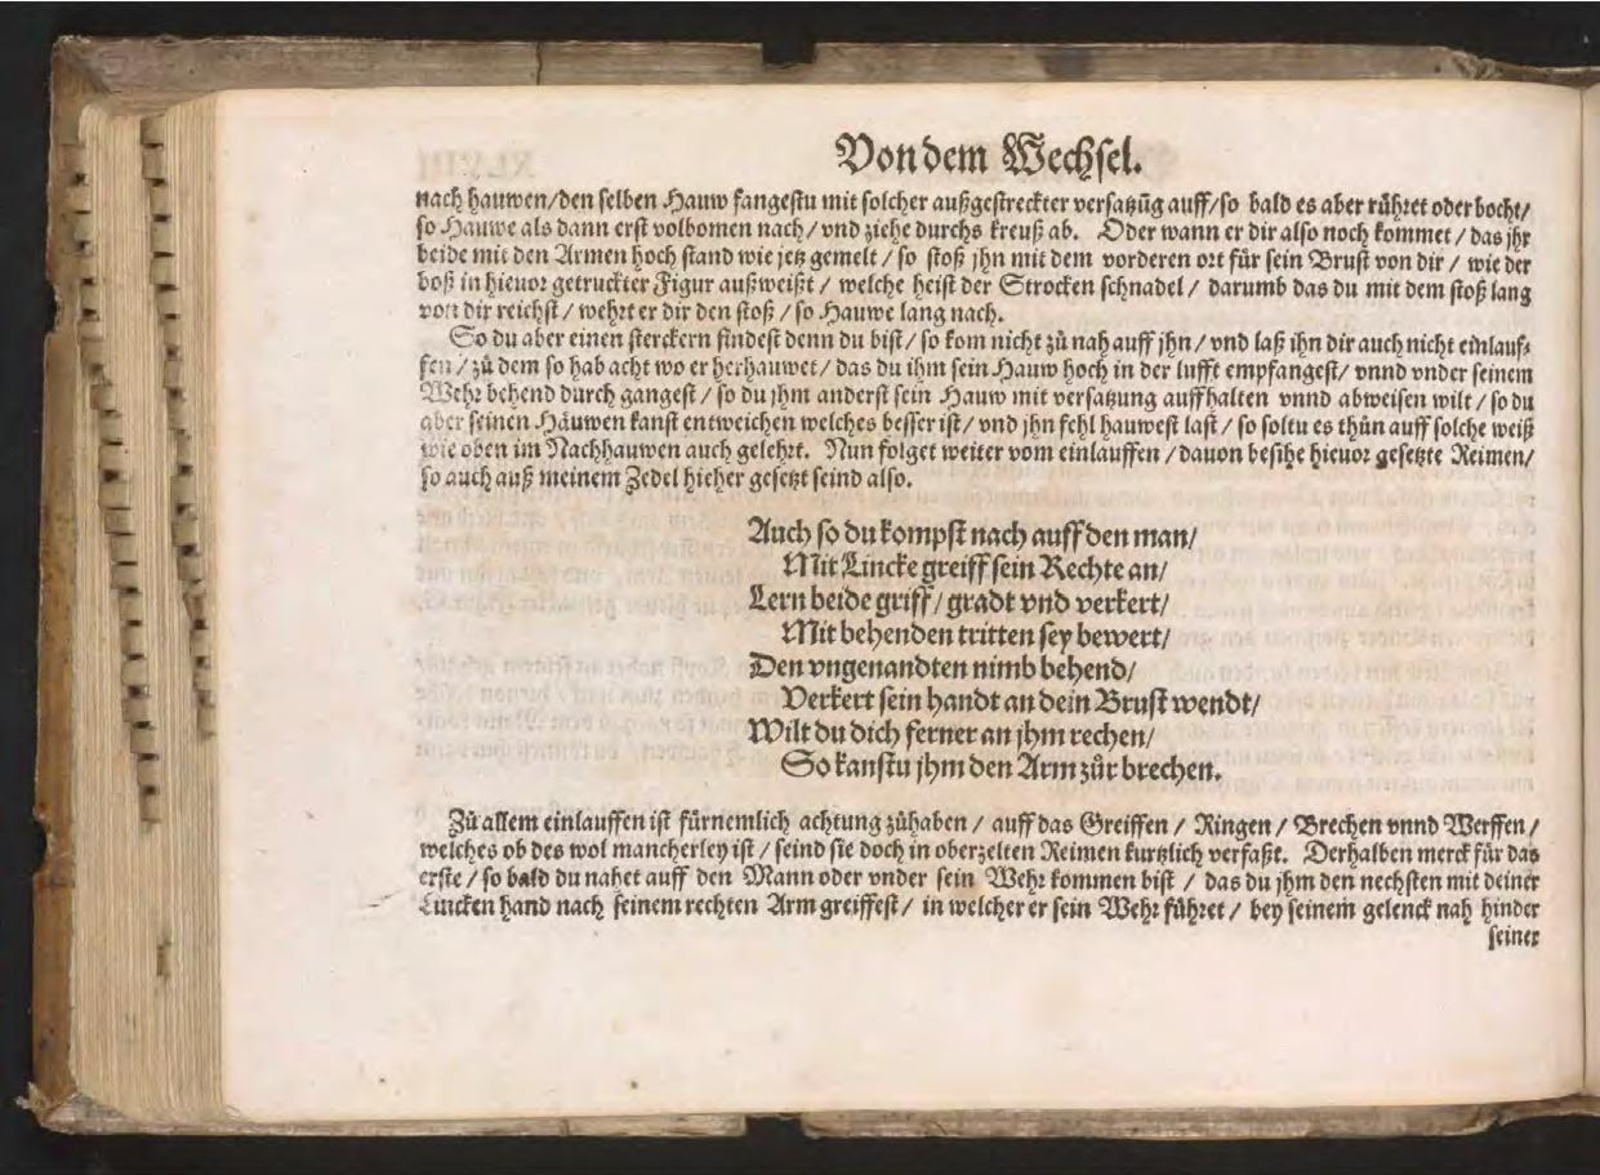 Von dem Wechsel.
nach hauwen/den selben Hauw fangestu mit solcher außgestreckter versatzũg auff/so bald es aber rühret oder bocht/
so Hauwe als dann erst volbomen nach/vnd ziehe durchs kreuß ab. Oder wann er dir also noch kommet/das jhr
beide mit den Armen hoch stand wie jetz gemelt/so stoß jhn mit dem vorderen ort für sein Brust von dir/wie der
boß in hieuor getruckter Figur außweißt/welche heist der Strocken schnabel/darumb das du mit dem stoß lang
von dir reichst/wehrt er dir den stoß/so Hauwe lang nach.
So du aber einen sterckern findest denn du bist/so kom nicht zů nah auff jhn/vnd laß ihn dir auch nicht einlauf-
fen/zů dem so hab acht wo er herhauwet/das du ihm sein Hauw hoch in der lufft empfangest/vnnd vnder seinem
Wehr behend durch gangest/so du jhm anderst sein Hauw mit versatzung auffhalten vnnd abweisen wilt/so du
aber seinen Häuwen kanst entweichen welches besser ist/vnd jhn fehl hauwest last/so soltu es thůn auff solche weiß
wie oben im Nachhauwen auch gelehrt. Nun folget weiter vom einlauffen/dauon besihe hieuor gesetzte Reimen/
so auch auß meinem Zedel hieher gesetzt seind also.
Auch so du kompst nach auff den man/
Mit Lincke greiff sein Rechte an/
Lern beide griff/gradt vnd verkert/
Mit behenden tritten sey bewert/
Den vngenandten nimb behend/
Verkert sein handt an dein Brust wendt/
Wilt du dich ferner an jhm rechen/
So kanstu jhm den Arm zůr brechen.
Zů allem einlauffen ist fürnemlich achtung zůhaben/auff das Greiffen/Ringen/Brechen vnnd Werffen/
welches ob des wol mancherley ist/seind sie doch in oberzelten Reimen kurtzlich verfaßt. Derhalben merck für das
erste/so bald du nahet auff den Mann oder vnder sein Wehr kommen bist/das du jhm den nechsten mit deiner
Lincken hand nach seinem rechten Arm greiffest/in welcher er sein Wehr führet/bey seinem gelenck nah hinder
seiner